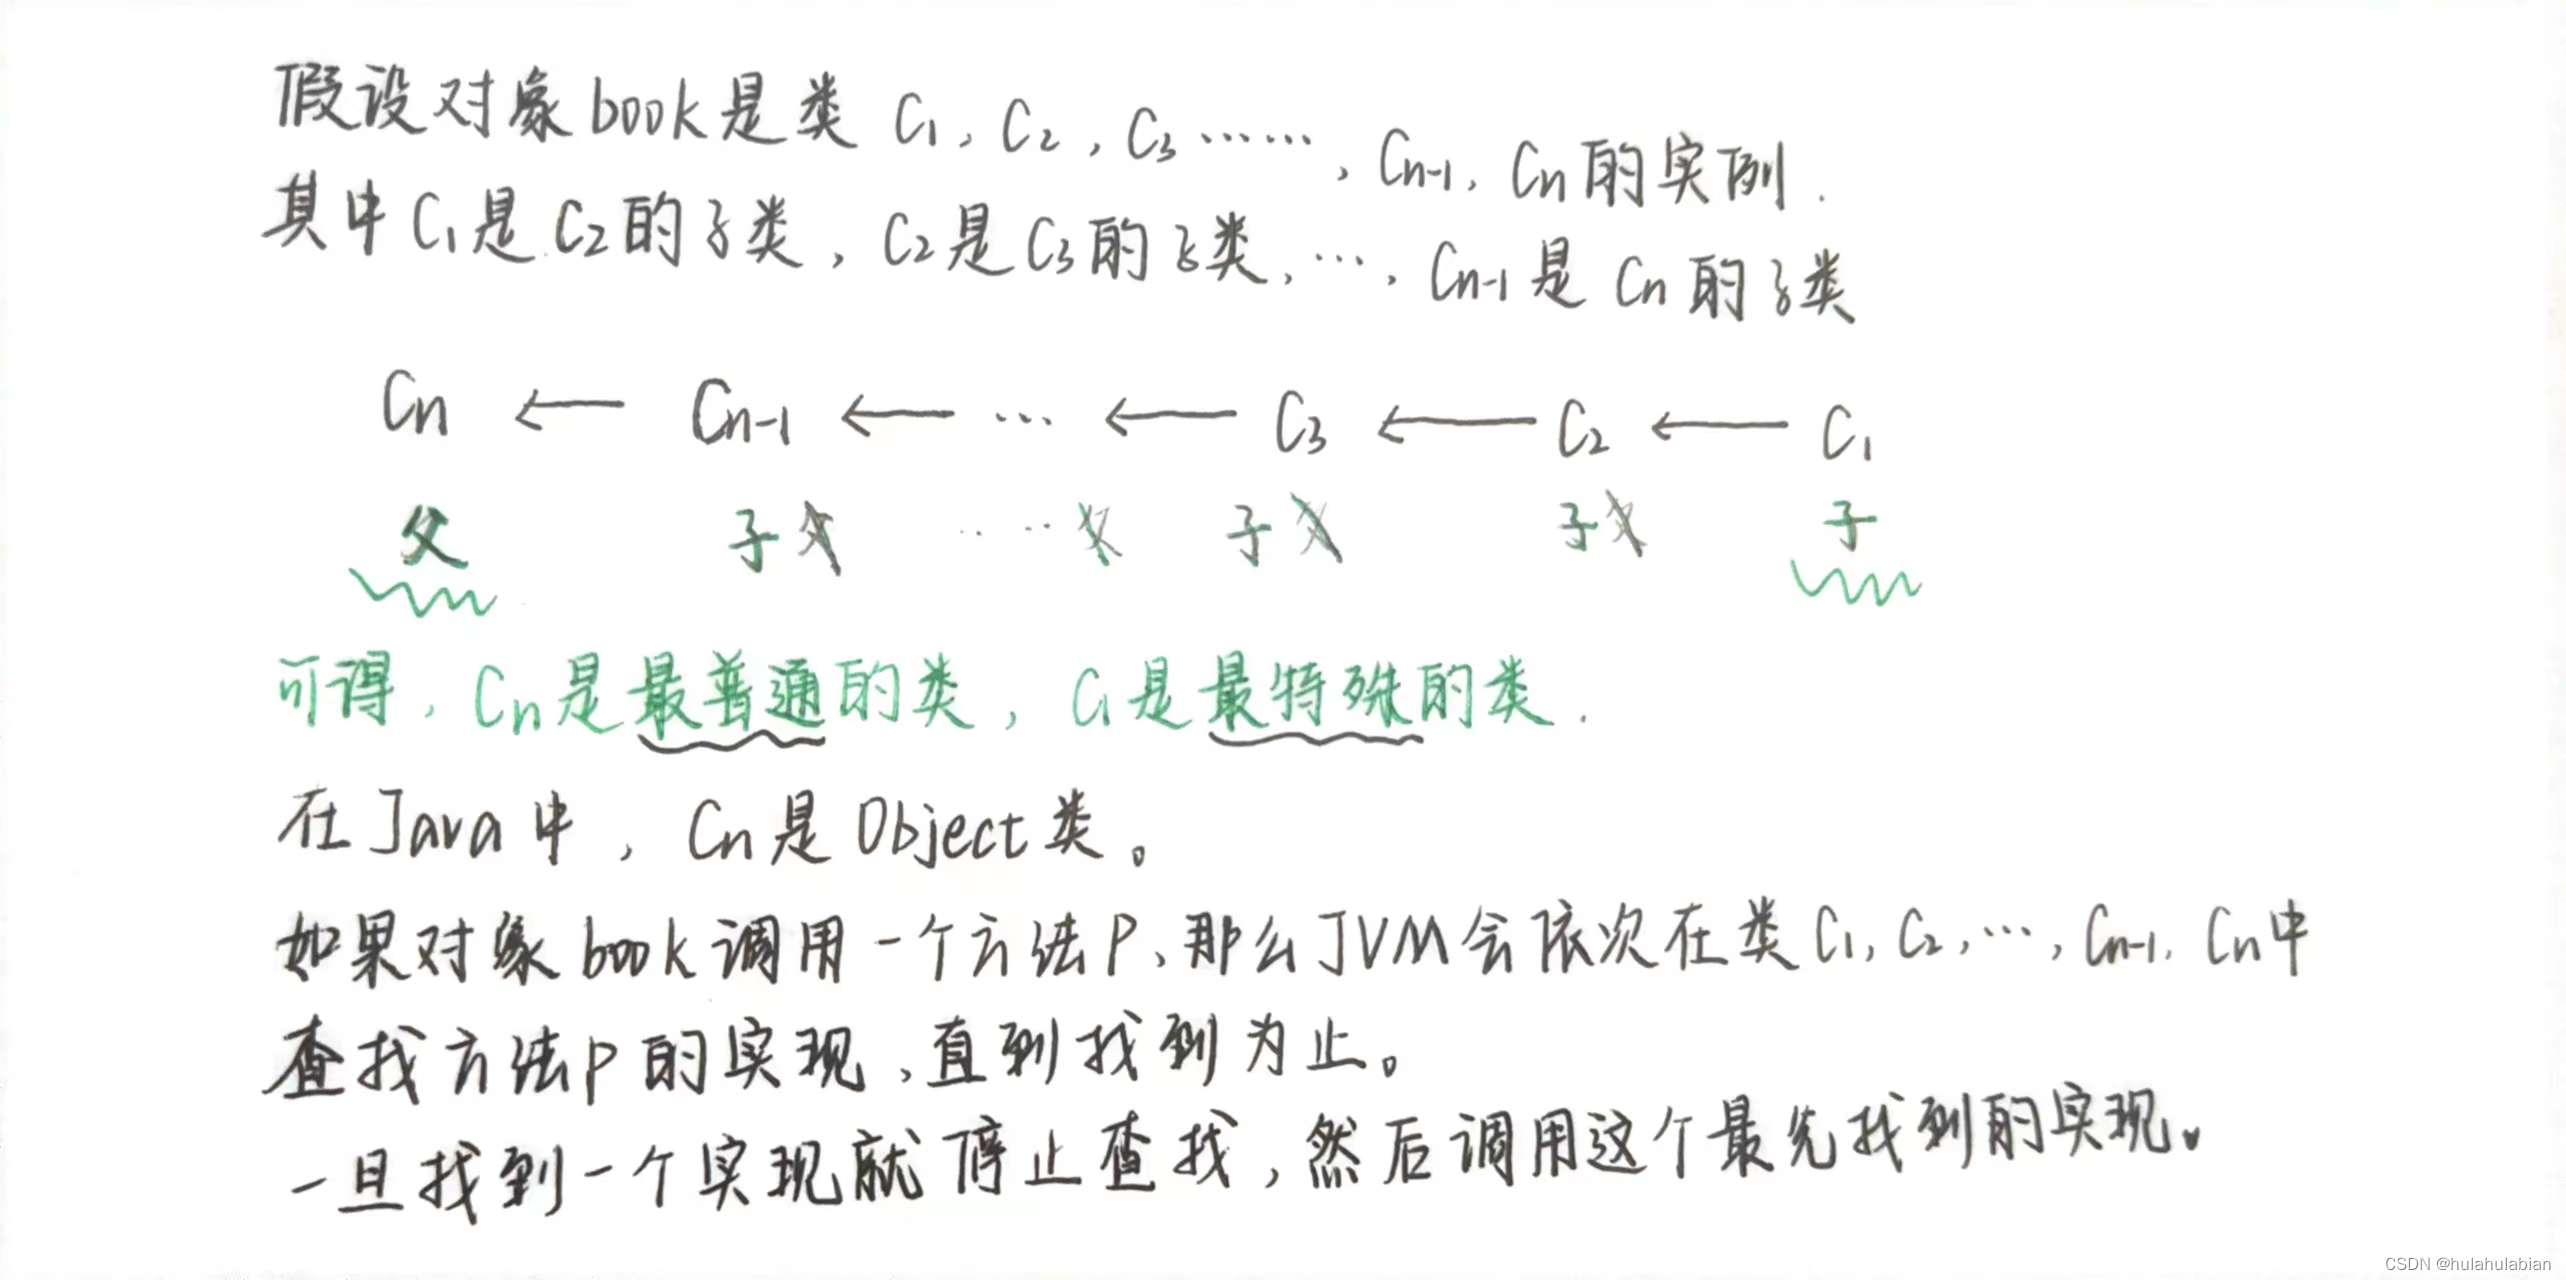 假设对象book是类 C1, C2, C3 ……, Cn-1, Cn的实例.
其中C1是C2的子类, C2是C3的子类, …, Cn-1是Cn的子类
Cn ← Cn-1 ← … ← C3 ← C2 ← C1
父 子父 …… 父 子父 子父 子
可得, Cn是最普通的类, C1是最特殊的类.
在Java中, Cn是Object类。
如果对象book调用一个方法P、那么JVM会依次在类C1, C2, …, Cn-1, Cn中
查找方法P的实现、直到找到为止。
一旦找到一个实现就停止查找, 然后调用这个最先找到的实现。
CSDN @hulahulabian